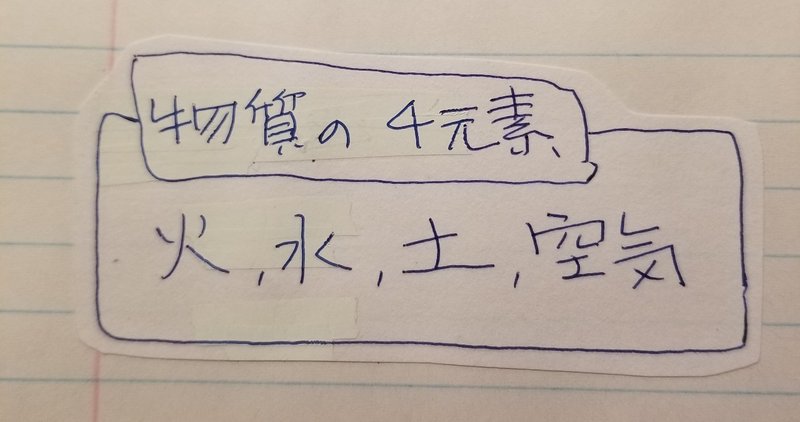 物質の4元素
火,水,土,空気